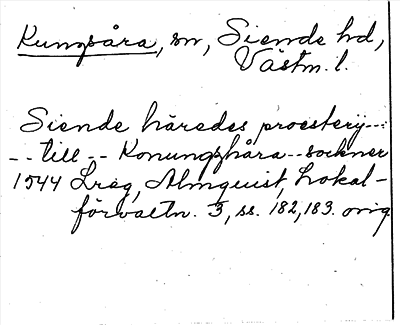 Kungsåra, sn, Siende hd,
Västm. l.
Siende häredes proesterij---
-- till -- Konungxhåra -- sockner
1544 Lreg, Almquist, Lokal-
förvaltn. 3, ss. 182, 183. orig